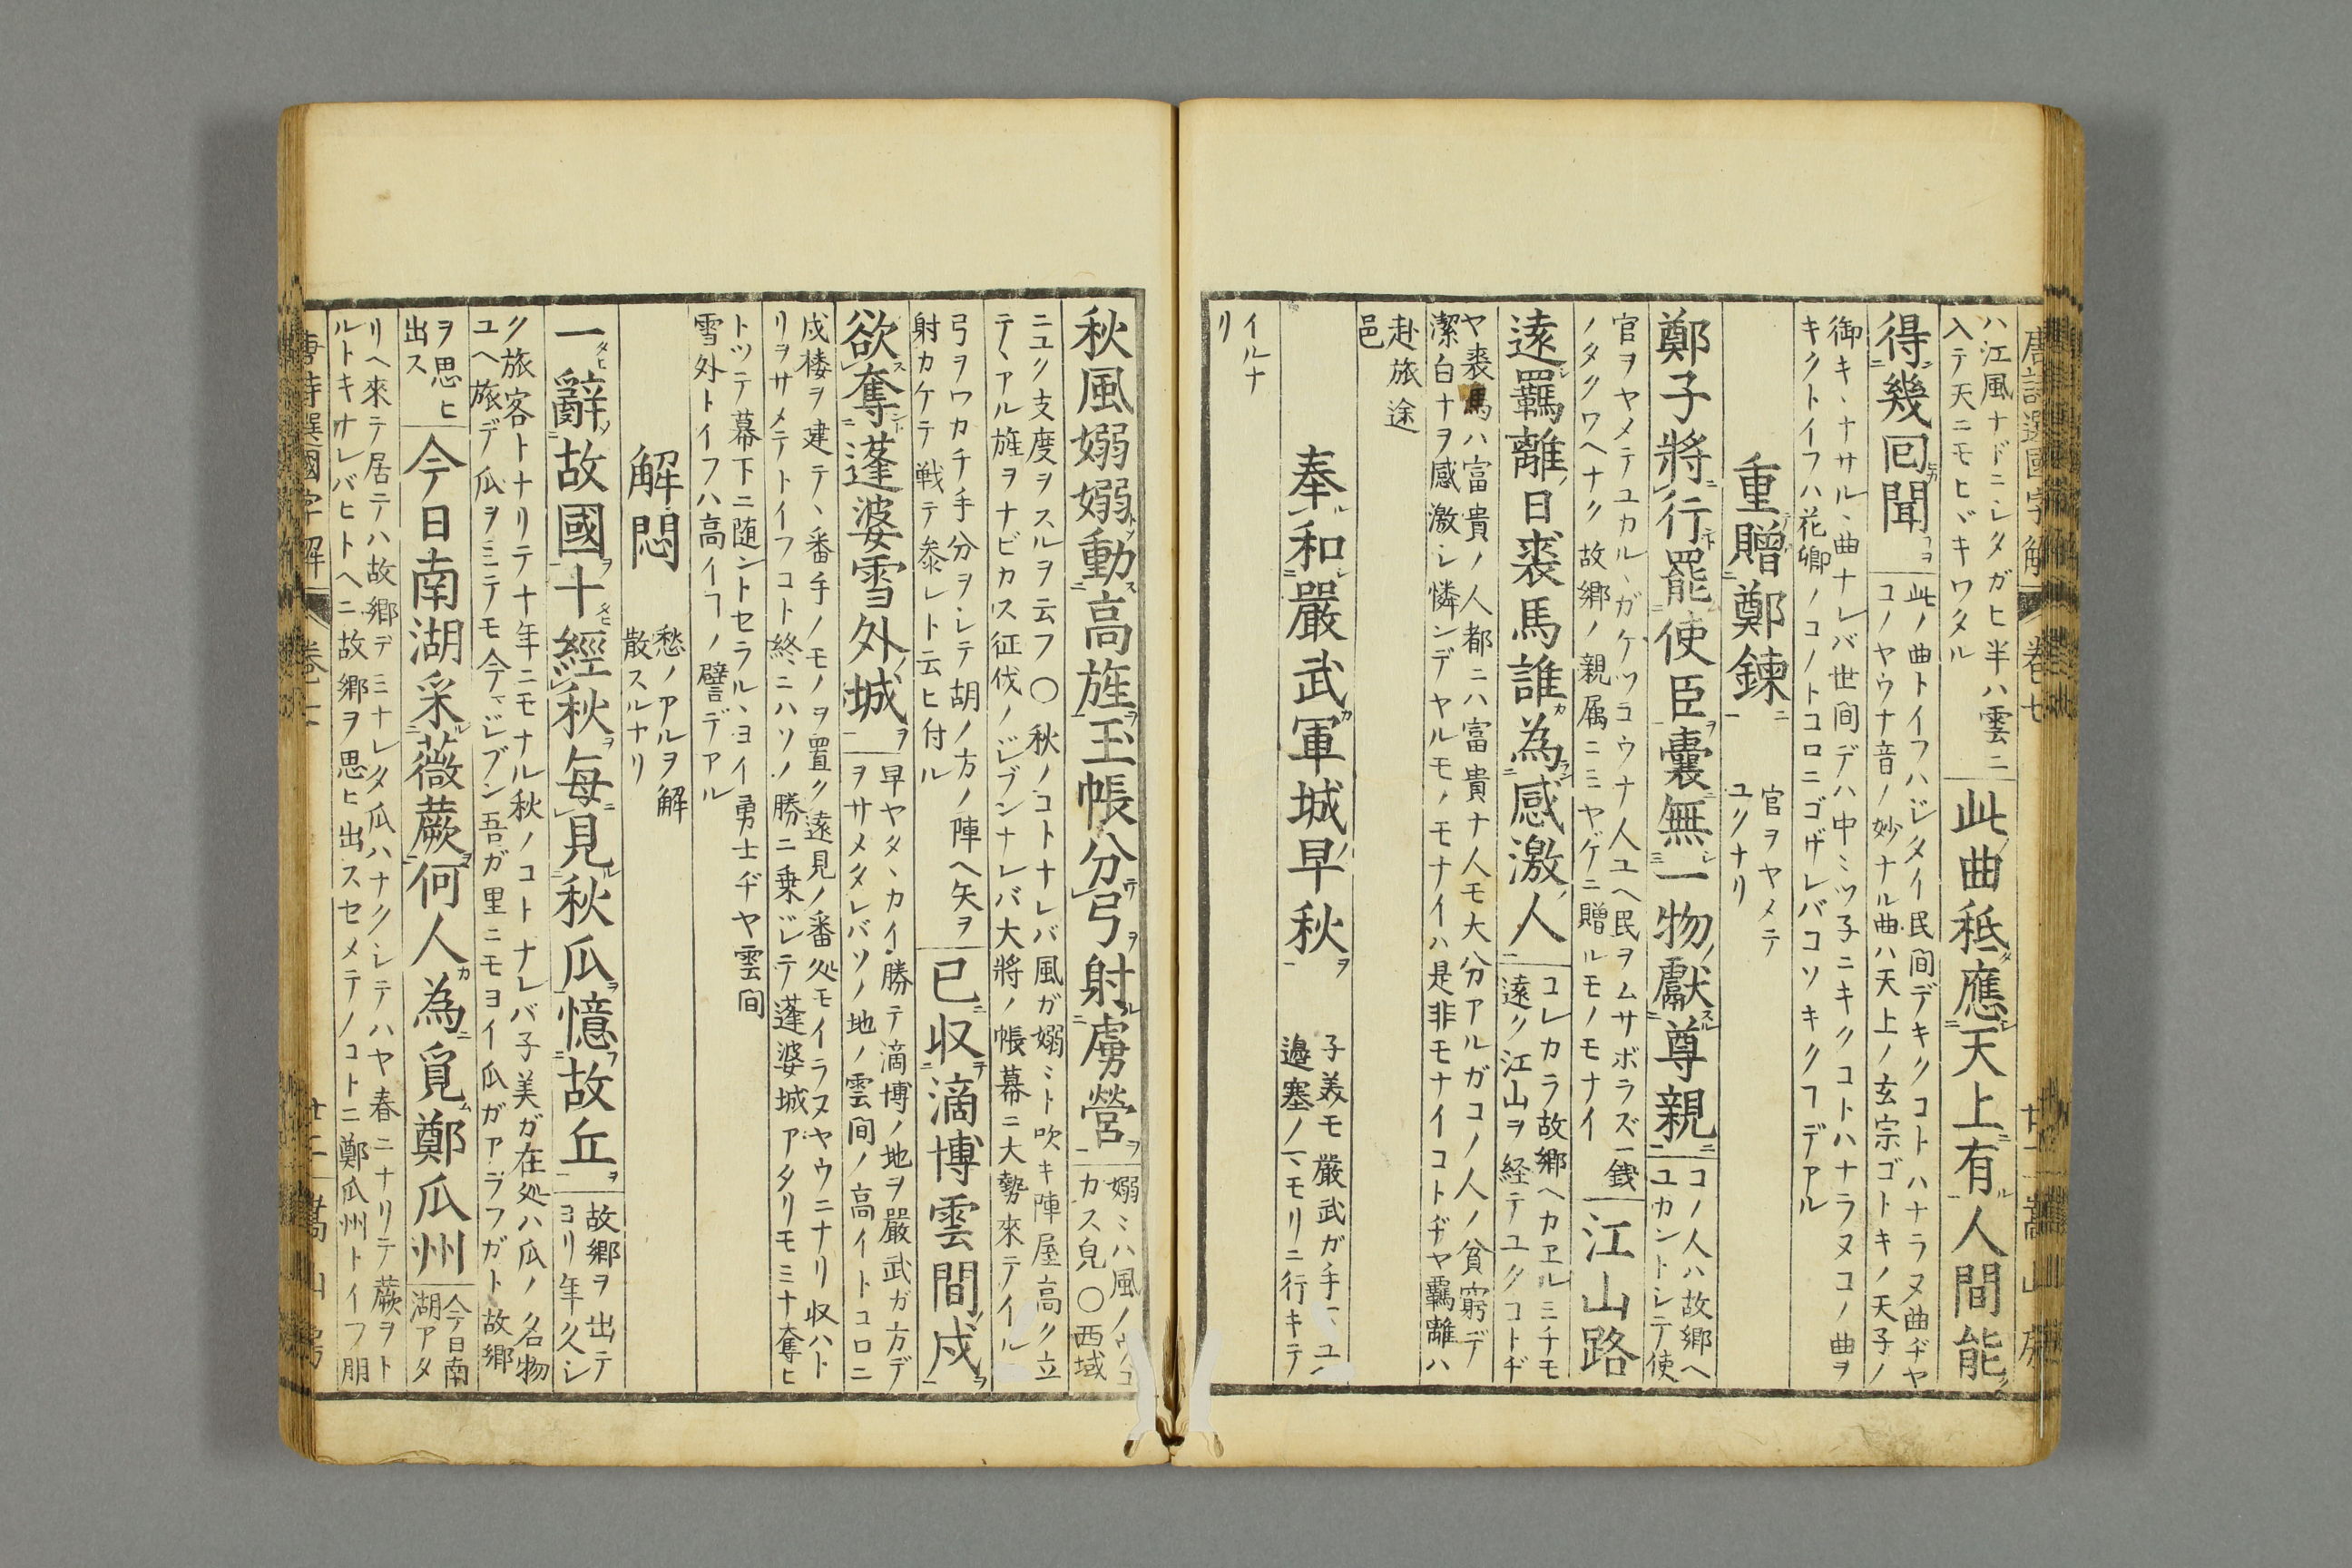 唐詩選國字解 卷七 嵩山房
ハ江風ナドニシタガヒ半ハ雲ニ
入テ天ニモヒヾキワタル
此曲秪應天上有人間能
得幾回聞
此ノ曲トイフハジタイ民間デキクコトハナラヌ曲ヂヤ
コノヤウナ音ノ妙ナル曲ハ天上ノ玄宗ゴトキノ天子ノ
御キヽナサルヽ曲ナレバ世間デハ中ミツ子ニキクコトハナラヌコノ曲ヲ
キクトイフハ花卿ノコノトコロニゴザレバコソキクフデアル
重贈鄭鍊
官ヲヤメテ
ユクナリ
鄭子將行罷使臣囊無一物獻尊親
コノ人ハ故郷ヘ
ユカントシテ使
官ヲヤメテユカルヽガケツコウナ人ユヘ民ヲムサボラズ一銭
ノタクワヘナク故郷ノ親属ニミヤゲニ贈ルモノモナイ
江山路
遠羈離日裘馬誰為感激人
コレカラ故郷ヘカヱルニチモ
遠ク江山ヲ経テユクコトヂ
ヤ裘馬ハ富貴ノ人都ニハ富貴ナ人モ大分アルガコノ人ノ貧窮デ
潔白ナヲ感激シ憐ンデヤルモノモナイハ是非モナイコトヂヤ羈離ハ
赴旅途
邑
奉和嚴武軍城早秋
子美モ嚴武ガ手ニユ
邉塞ノマモリニ行キテ
イルナ
リ
秋風嫋嫋動高旌玉帳分弓射虜營
嫋ミハ風ノウゴ
カス皃〇西域
ニユク支度ヲスルヲ云フ〇秋ノコトナレバ風ガ嫋ミト吹キ陣屋高ク立
テヽアル旌ヲナビカス征伐ノジブンナレバ大將ノ帳幕ニ大勢來テイル
弓ヲワカチ手分ヲシテ胡ノ方ノ陣ヘ矢ヲ
射カケテ戦テ参レト云ヒ付ル
已収滴博雲間戍
欲奪蓬婆雪外城
早ヤタヽカイ勝テ滴博ノ地ヲ嚴武ガ方デ
ヲサメタレバソノ地ノ雲間ノ高イトコロニ
戍楼ヲ建テヽ番手ノモノヲ置ク遠見ノ番処モイラヌヤウニナリ収ハト
リヲサメテトイフコト終ニハソノ勝ニ乗ジテ蓬婆城アタリモミナ奪ヒ
トツテ幕下ニ随ントセラルヽヨイ勇士ヂヤ雲間
雪外トイフハ高イフノ譬デアル
解悶
愁ノアルヲ解
散スルナリ
一辭故國十經秋每見秋瓜憶故丘
故郷ヲ出テ
ヨリ年久シ
ク旅客トナリテ十年ニモナル秋ノコトナレバ子美ガ在処ハ瓜ノ名物
ユヘ旅デ瓜ヲミテモ今ジブン吾ガ里ニモヨイ瓜ガアラフガト故郷
ヲ思ヒ
出ス
今日南湖采薇蕨何人為覓鄭瓜州
今日南
湖アタ
リヘ來テ居テハ故郷デミナレタ瓜ハナクシテハヤ春ニナリテ蕨ヲト
ルトキナレバヒトヘニ故郷ヲ思ヒ出スセメテノコトニ鄭瓜州トイフ朋
唐詩選國字解 卷七 嵩山房